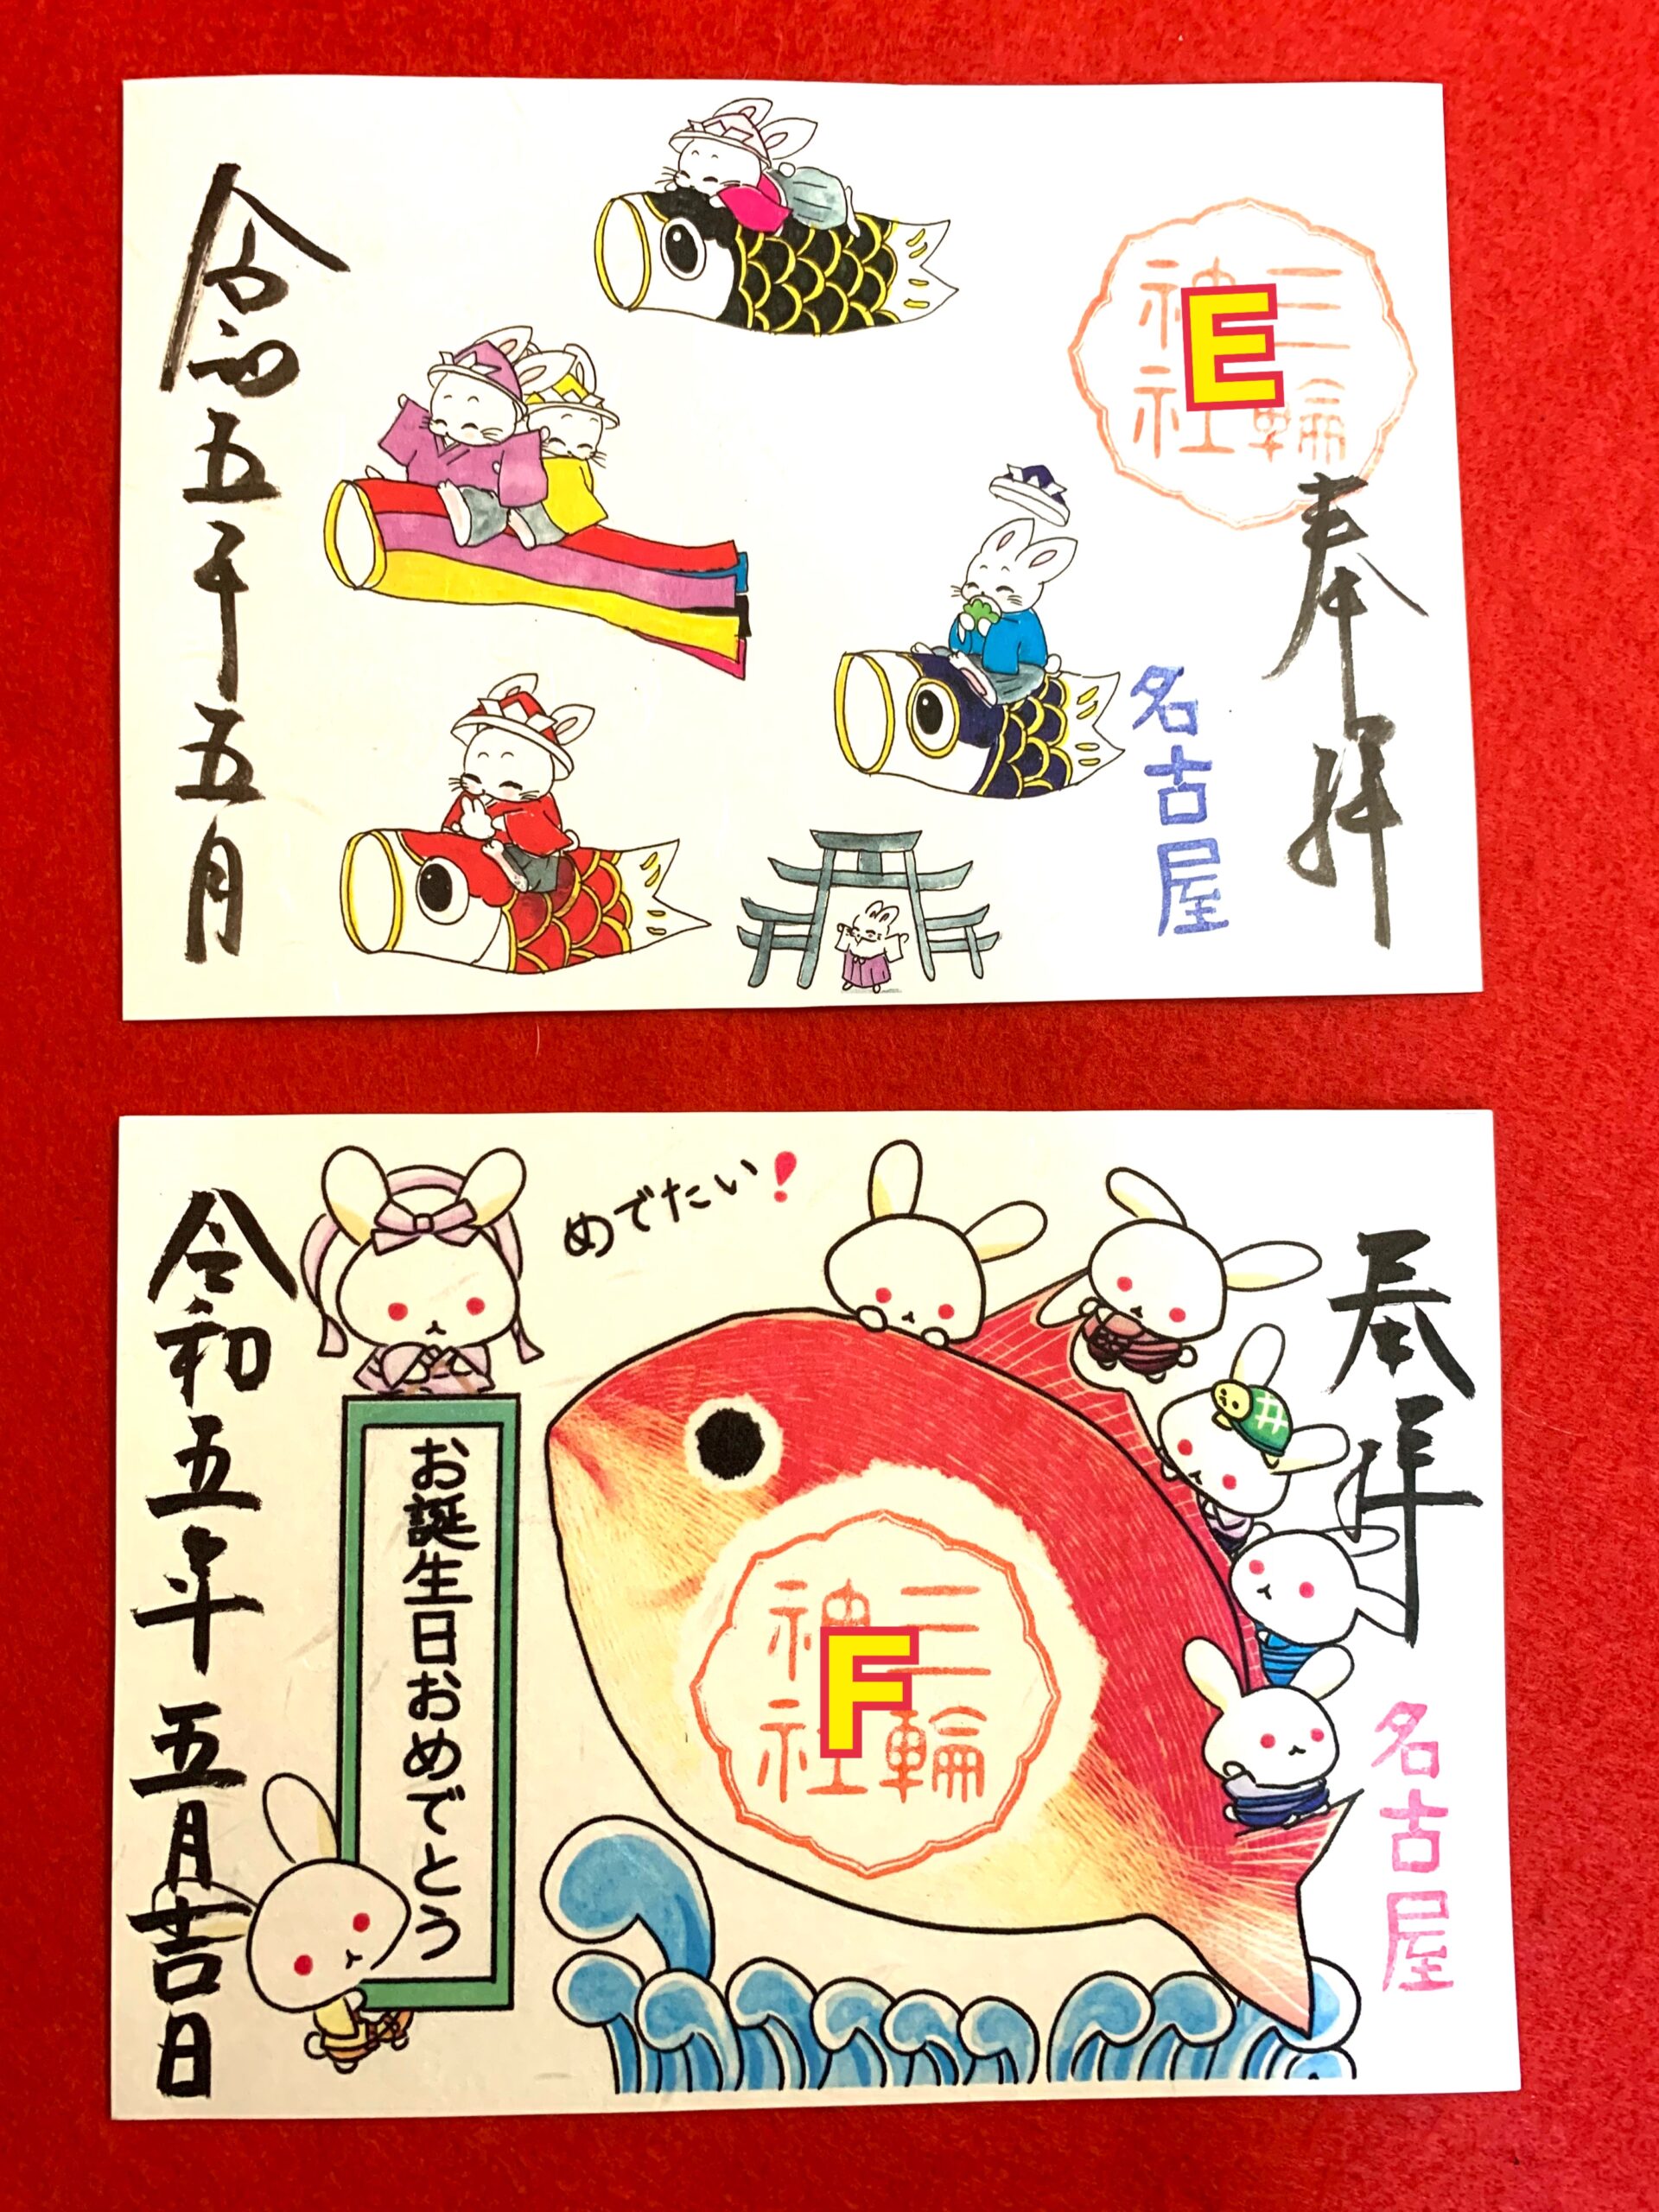 奉拝
三輪
神社
E
名古屋
令和五年五月
奉拝
名古屋
めでたい!
三輪
神社
F
お誕生日おめでとう
令和五年五月吉日